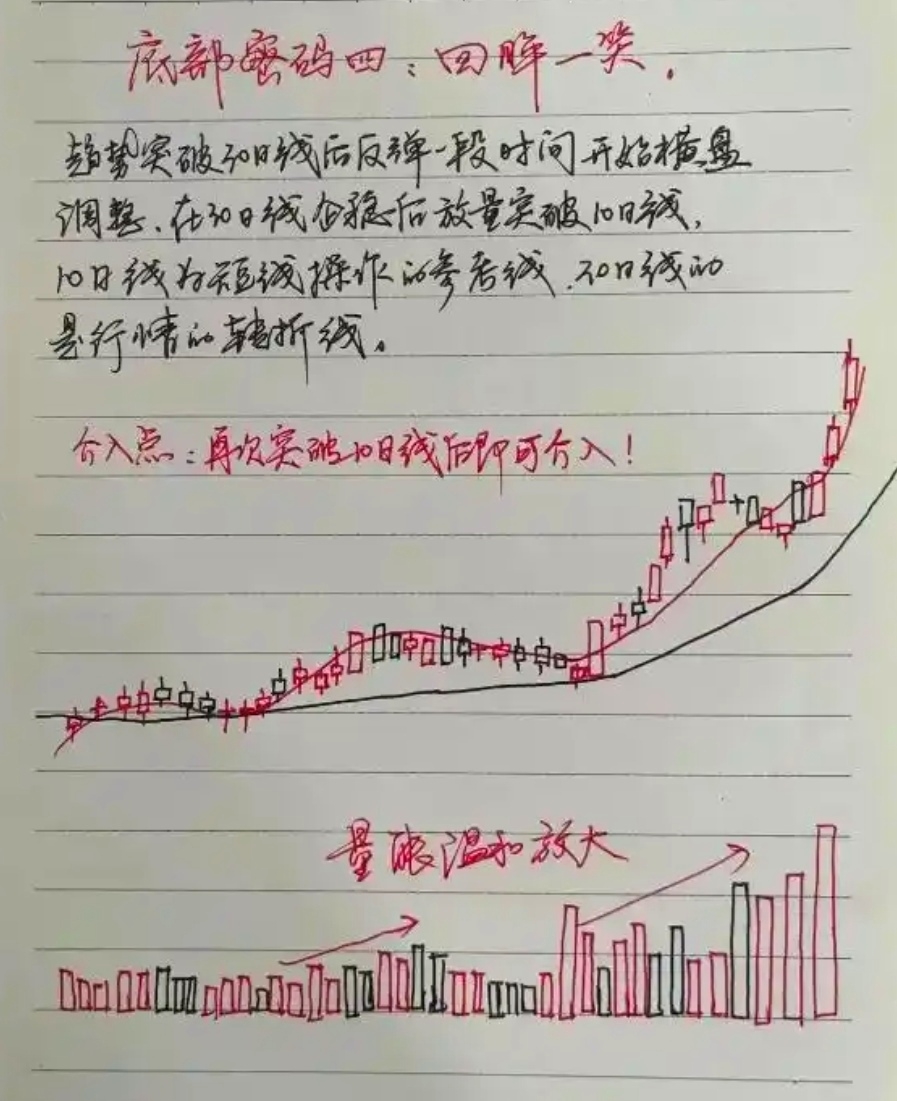 底部密码四：回眸一笑.
趋势突破30日线后反弹一段时间开始横盘
调整、在30日线企稳后放量突破10日线,
10日线为短线操作的参考线.30日线的
是行情的转折线。
介入点：再次突破10日线后即可介入！
量能温和放大